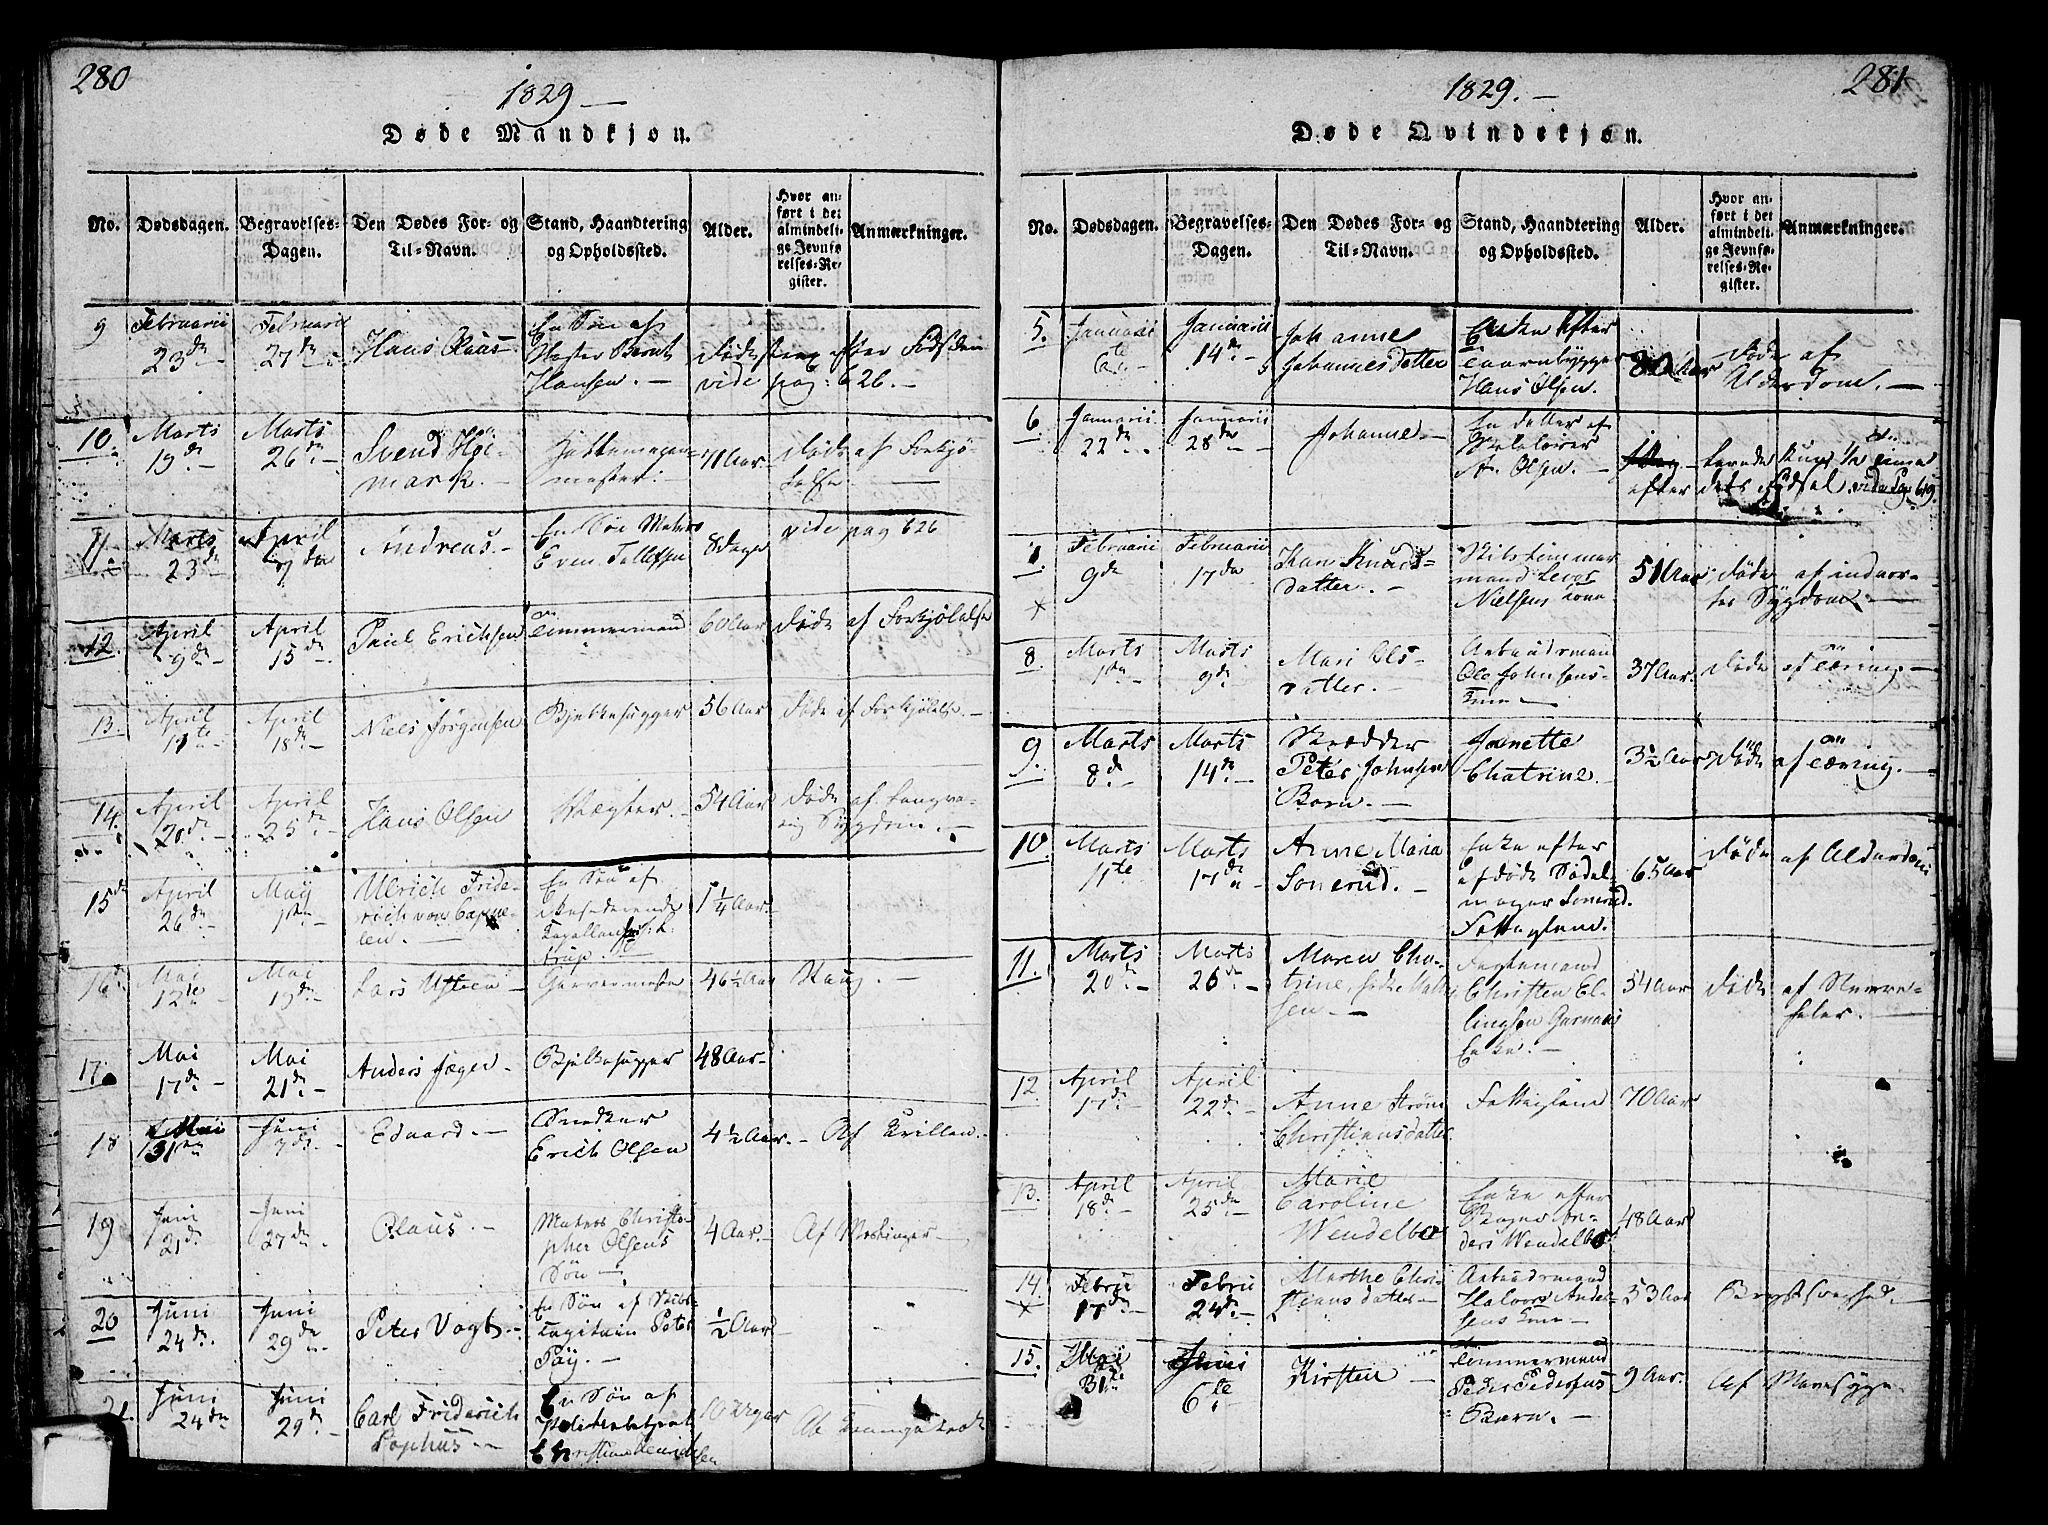 280
1829 —
Døde Mandkjøn.
No. Dødsdagen. Begravelses-Dagen. Den Dødes For- og Til-Navn. Stand, Haandtering og Opholdssted. Alder. Hvor anført i det almindelige Jevnførelses-Register. Anmærkninger.
9 Februarii 23de Februarii 27de Hans Claus En Søn af Bernt Hansen. Døde strax efter Fødselen vide pag: 626.
10. Marts 19de Marts 26de Svend Høimark. 71 Aar Døde af Forkjølelse
11 Marts 23de April 7de Andreas. En Søn Matros Even Tollefsen 8 Dage vide pag 626
12. April 9de April 15de Paul Erichsen Tømmermand 60 Aar Døde af Forkjølelse
13. April 11te April 18de Niels Jørgensen Bjelkehugger 56 Aar Døde af Forkjølelse.
14. April 20de April 25de Hans Olsen Vægter. 54 Aar Døde af Langvarig Sygdom.
15de April 26de May 1ste Ulrich Friderich von Cappelen. En Søn af 1 1/4 Aar.
16de Mai 12te Mai 19de Lars Garvermester 46 1/2 Aar
17. Mai 17de Mai 21de Anders Jæger Bjelkehugger 48 Aar
18 Mai 31te Juni Edvard. Snedker Erich Olsen 4 1/2 Aar. Af Krillen.
19 Juni 21de Juni 27de Claus. Matros Christopher Olsens Søn 4 Aar. Af Meslinger
20 Juni 24de Juni 29de Peter Vogt En Søn af Skibscapitain Peter Pay. 1/2 Aar
21. Juni 24de Juni 29de Carl Friderich Sophus En Søn af Politiebetjent Christian 10 Uger
281
1829. —
Døde Qvindekjøn.
No. Dødsdagen. Begravelses-Dagen. Den Dødes For- og Til-Navn. Stand, Haandtering og Opholdssted. Alder. Hvor anført i det almindelige Jevnførelses-Register. Anmærkninger.
5. Januarii 6te Januarii 14de Johanne Johannesdatter Enke efter Taarnbygger Hans Olsen. 80 Aar Døde af Alderdom.
6 Januarii 22de Januarii 28de Johanne. En datter af A. Olsen. levede kun 1/2 Time efter dets Fødsel. vide pag 619.
7. Februarii 9de Februarii 17de Karen Knudsdatter. Skibstømmermand Nielsens Kone 51 Aar Døde af indvortes Sygdom.
8. Marts 1ste Marts 9de Mari Olsdatter. Arbeidsmand Ole Johnsens Kone 37 Aar. Døde af Tæring
9. Marts 8de Marts 14de Skrædder Peter Johnsens Barn. Janette Chatrine. 3 1/2 Aar Døde af Tæring.
10. Marts 11te Marts 17de Anne Maria Sonerud. Enke efter afdøde Sadelmager Sonerud. Fattiglem. 65 Aar Døde af Alderdom
11. Marts 20de Marts 26de Maren Chatrine, født Enke. 54 Aar Døde af Nervefeber.
12 April 17de April 22de Anne Strøm Christiansdatter. Fattiglem 70 Aar
13. April 18de April 25de Marie Caroline Wendelboe Enke efter Wendelboe 48 Aar
14. Febrii 17de Febrii 24de Marthe Christiansdatter Arbeidsmand Halvor Andersens Kone 53 Aar Brystsvaghed.
15. Mai 31te Juni 6te Kirsten Tømmermand Peder Pedersens Barn. 9 Aar. Af Mavesyge